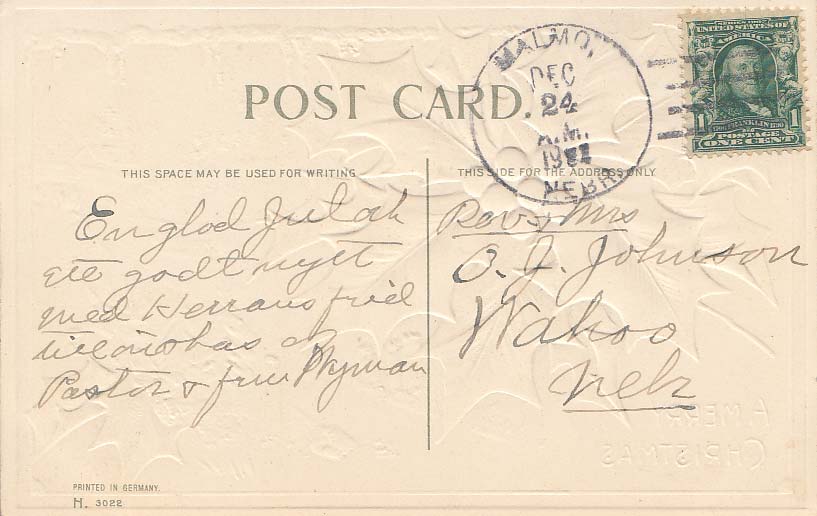 POST CARD.
MALMO,
DEC
24
A.M.
NEBR.
SERIES 1902
UNITED STATES OF
AMERICA
1 1
FRANKLIN
POSTAGE
ONE CENT
THIS SPACE MAY BE USED FOR WRITING
THIS SIDE FOR THE ADDRESS ONLY
En glad Jul och
ett godt nytt
med Herrans frid
Pastor & fru Nyman
Rev & Mrs
O. J. Johnson
Wahoo
Nebr
A MERRY
CHRISTMAS
PRINTED IN GERMANY.
H. 3022